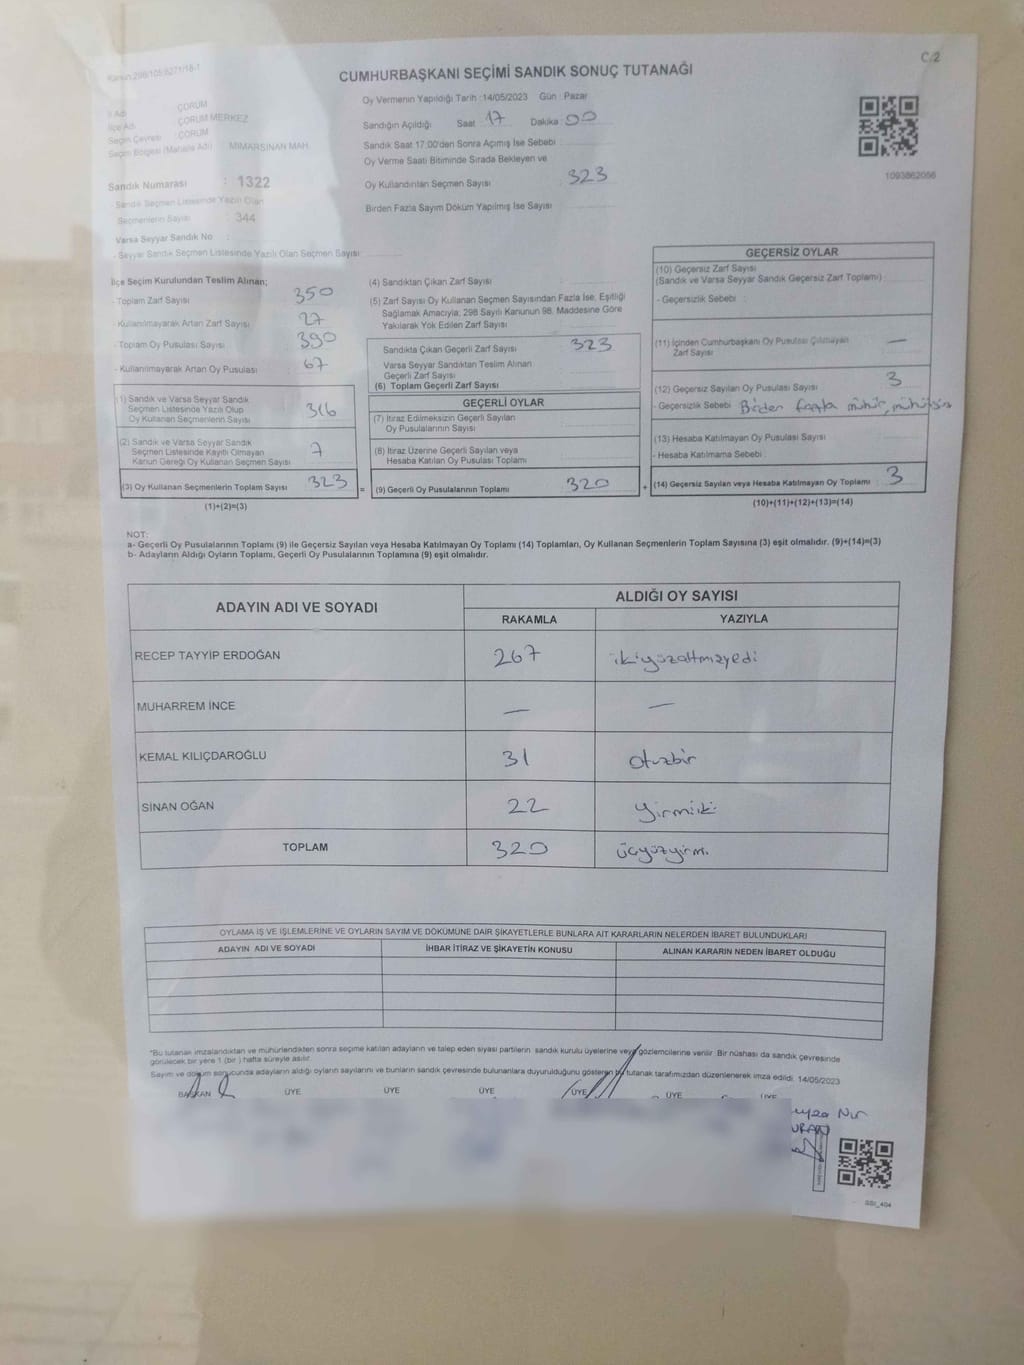 Kanun 298/105,6271/18-1
C.2
CUMHURBAŞKANI SEÇİMİ SANDIK SONUÇ TUTANAĞI
İl Adı : ÇORUM
İlçe Adı : ÇORUM MERKEZ
Seçim Çevresi : ÇORUM
Seçim Bölgesi (Mahalle Adı) : MİMARSİNAN MAH.
Sandık Numarası : 1322
- Sandık Seçmen Listesinde Yazılı Olan
Seçmenlerin Sayısı : 344
Varsa Seyyar Sandık No :
- Seyyar Sandık Seçmen Listesinde Yazılı Olan Seçmen Sayısı :
Oy Vermenin Yapıldığı Tarih :14/05/2023 Gün : Pazar
Sandığın Açıldığı Saat 17 Dakika : 00
Sandık Saat 17.00'den Sonra Açımış İse Sebebi :
Oy Verme Saati Bitiminde Sırada Bekleyen ve
Oy Kullandırılan Seçmen Sayısı : 323
Birden Fazla Sayım Döküm Yapılmış İse Sayısı
1093862056
İlçe Seçim Kurulundan Teslim Alınan;
- Toplam Zarf Sayısı 350
- Kullanılmayarak Artan Zarf Sayısı 27
- Toplam Oy Pusulası Sayısı 390
- Kullanılmayarak Artan Oy Pusulası 67
(1) Sandık ve Varsa Seyyar Sandık
Seçmen Listesinde Yazılı Olup
Oy Kullanan Seçmenlerin Sayısı 316
(2) Sandık ve Varsa Seyyar Sandık
Seçmen Listesinde Kayıtlı Olmayan
Kanun Gereği Oy Kullanan Seçmen Sayısı 7
(3) Oy Kullanan Seçmenlerin Toplam Sayısı 323
(1)+(2)=(3)
(4) Sandıktan Çıkan Zarf Sayısı
(5) Zarf Sayısı Oy Kullanan Seçmen Sayısından Fazla İse, Eşitliği
Sağlamak Amacıyla, 298 Sayılı Kanunun 98. Maddesine Göre
Yakılarak Yok Edilen Zarf Sayısı
Sandıkta Çıkan Geçerli Zarf Sayısı : 323
Varsa Seyyar Sandıktan Teslim Alınan
Geçerli Zarf Sayısı
(6) Toplam Geçerli Zarf Sayısı
GEÇERLİ OYLAR
(7) İtiraz Edilmeksizin Geçerli Sayılan
Oy Pusulalarının Sayısı
(8) İtiraz Üzerine Geçerli Sayılan veya
Hesaba Katılan Oy Pusulası Toplamı
= (9) Geçerli Oy Pusulalarının Toplamı 320
GEÇERSİZ OYLAR
(10) Geçersiz Zarf Sayısı
(Sandık ve Varsa Seyyar Sandık Geçersiz Zarf Toplamı) :
- Geçersizlik Sebebi :
(11) İçinden Cumhurbaşkanı Oy Pusulası Çıkmayan
Zarf Sayısı —
(12) Geçersiz Sayılan Oy Pusulası Sayısı 3
- Geçersizlik Sebebi : Birden fazla mühür, mühürsüz
(13) Hesaba Katılmayan Oy Pusulası Sayısı :
- Hesaba Katılmama Sebebi :
+ (14) Geçersiz Sayılan veya Hesaba Katılmayan Oy Toplamı : 3
(10)+(11)+(12)+(13)=(14)
NOT:
a- Geçerli Oy Pusulalarının Toplamı (9) ile Geçersiz Sayılan veya Hesaba Katılmayan Oy Toplamı (14) Toplamları, Oy Kullanan Seçmenlerin Toplam Sayısına (3) eşit olmalıdır. (9)+(14)=(3)
b- Adayların Aldığı Oyların Toplamı, Geçerli Oy Pusulalarının Toplamına (9) eşit olmalıdır.
ADAYIN ADI VE SOYADI
ALDIĞI OY SAYISI
RAKAMLA YAZIYLA
RECEP TAYYİP ERDOĞAN 267 ikiyüzaltmışyedi
MUHARREM İNCE — —
KEMAL KILIÇDAROĞLU 31 otuzbir
SİNAN OĞAN 22 yirmiiki
TOPLAM 320 üçyüzyirmi
OYLAMA İŞ VE İŞLEMLERİNE VE OYLARIN SAYIM VE DÖKÜMÜNE DAİR ŞİKAYETLERLE BUNLARA AİT KARARLARIN NELERDEN İBARET BULUNDUKLARI
ADAYIN ADI VE SOYADI İHBAR İTİRAZ VE ŞİKAYETİN KONUSU ALINAN KARARIN NEDEN İBARET OLDUĞU
*Bu tutanak imzalandıktan ve mühürlendikten sonra seçime katılan adayların ve talep eden siyasi partilerin sandık kurulu üyelerine veya gözlemcilerine verilir. Bir nüshası da sandık çevresinde
görülecek bir yere 1 (bir ) hafta süreyle asılır.
Sayım ve döküm sonucunda adayların aldığı oyların sayılarını ve bunların sandık çevresinde bulunanlara duyurulduğunu gösteren bu tutanak tarafımızdan düzenlenerek imza edildi. 14/05/2023
BAŞKAN ÜYE ÜYE ÜYE ÜYE ÜYE ÜYE
Nur
SSI_404